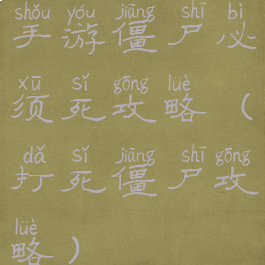 shǒu yóu jiāng shī bì
手游僵尸必
xū sǐ gōng lüè
须死攻略(
dǎ sǐ jiāng shī gōng
打死僵尸攻
lüè
略)